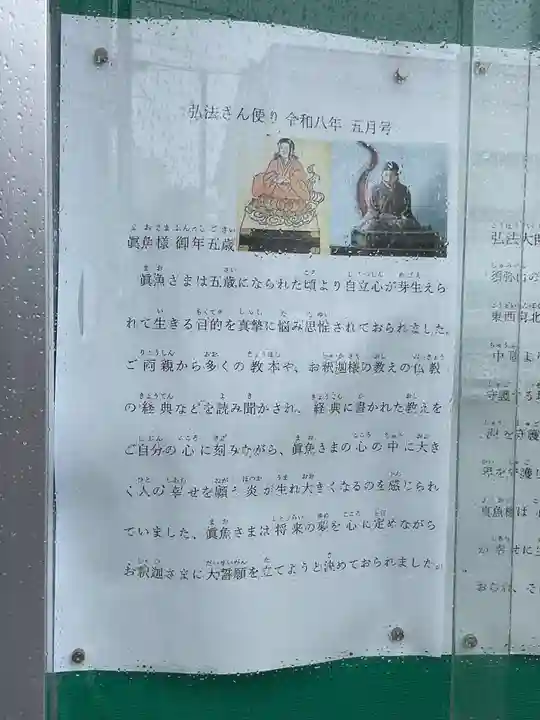 弘法さん便り 令和八年 五月号
眞魚様 御年五歳
眞魚さまは五歳になられた頃より自立心が芽生えら
れて生きる目的を真摯に悩み思惟されておられました。
ご両親から多くの教本や、お釈迦様の教えの仏教
の経典などを読み聞かされ、経典に書かれた教えを
ご自分の心に刻みながら、眞魚さまの心の中に大き
く人の幸せを願う炎が生れ大きくなるのを感じられ
ていました、眞魚さまは将来の夢を心に定めながら
お釈迦さまに大誓願を立てようと決めておられました。
弘法大
須弥山の
東西南北
中
守護する
を守護
を守護し
真魚様は
か幸せに
おられ、そ